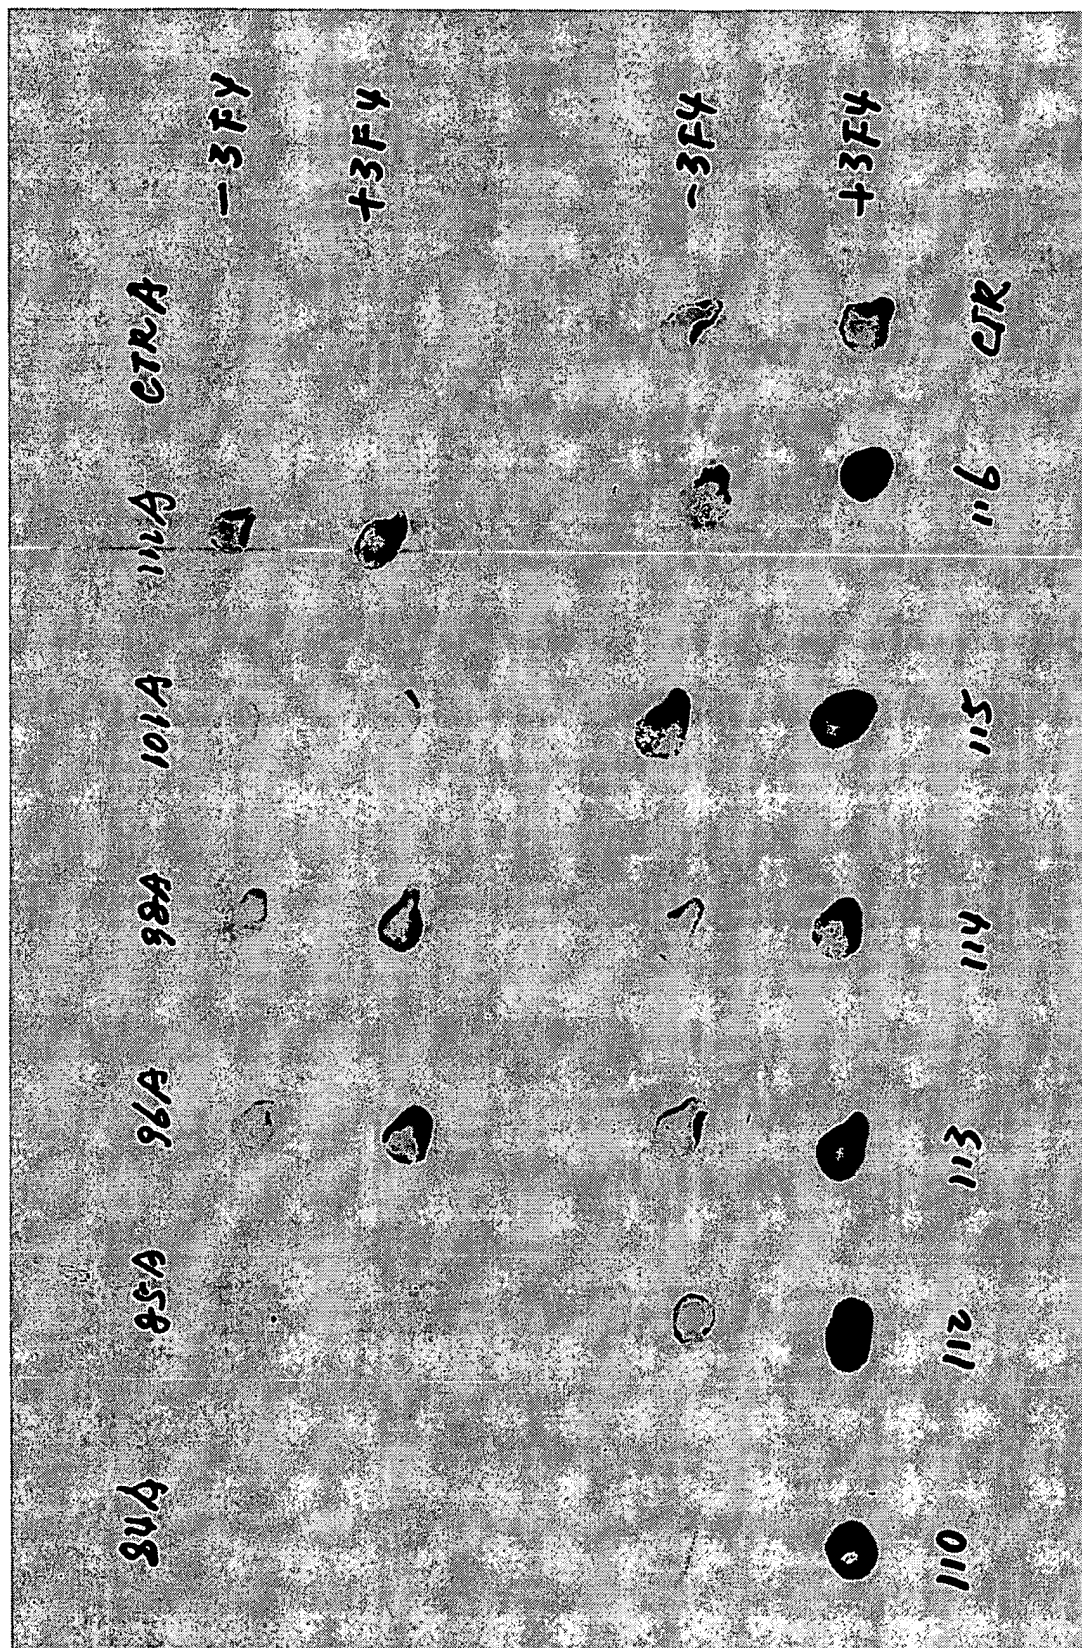 84A 85A 96A 98A 101A 112A CTRA
-3F4
+3F4
-3F4
+3F4
110 112 113 114 115 116 CTR